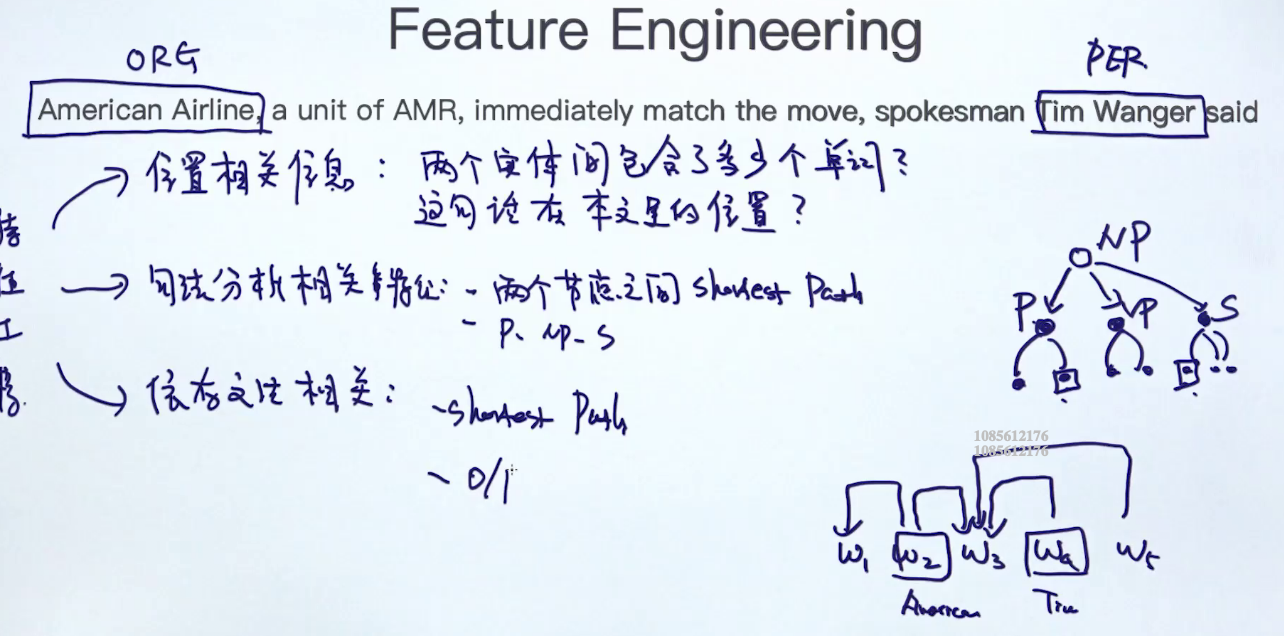 Feature Engineering
ORG
PER
American Airline, a unit of AMR, immediately match the move, spokesman Tim Wanger said
位置相关信息: 两个实体间包含了多少个单词?
这句话在本文里的位置?
特
征
工
句法分析相关特征: - 两个节点之间 shortest Path
- P- NP- S
依存文法相关:
- shortest Path
- 0/1
NP
P VP S
1085612176
1085612176
W1 W2 W3 W4 W5
American Tim